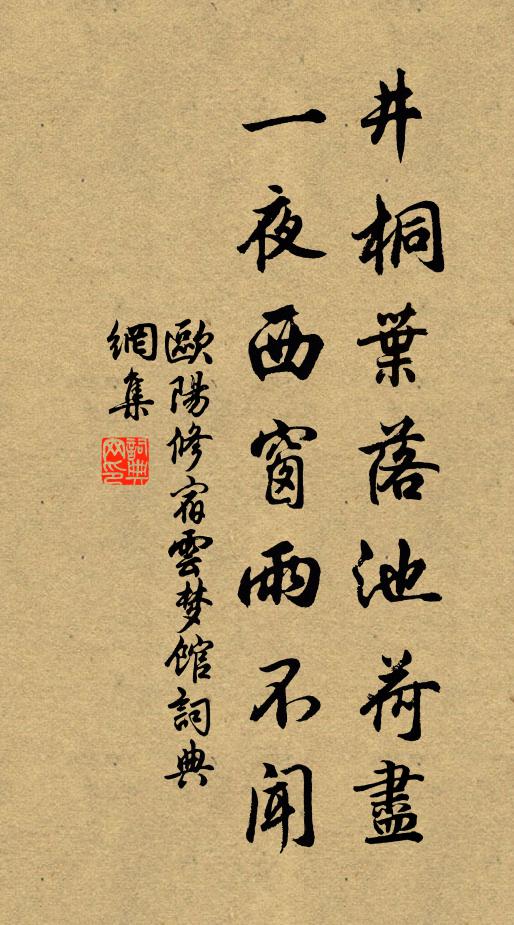 井桐葉落池荷盡
一夜西窗雨不聞
歐陽修宿雲梦館詞典
網集
詞典網印